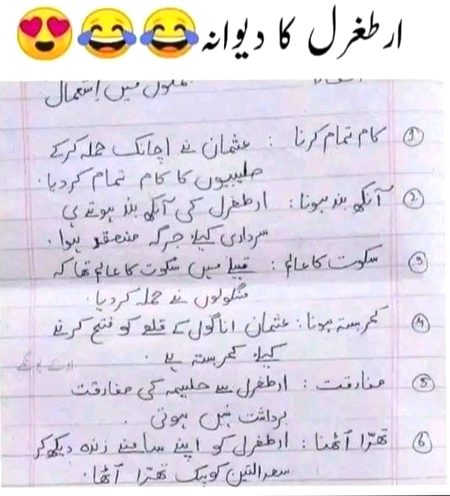 ارطغرل کا دیوانہ
جملوں میں استعمال
① کام تمام کرنا : عثمان نے اچانک حملہ کرکے
صلیبیوں کا کام تمام کردیا۔
② آنکھ بند ہونا : ارطغرل کی آنکھ بند ہوتے ہی
سرداری کیلئے جرگہ منعقد ہوا۔
③ سکوت کا عالم : قبیلے میں سکوت کا عالم تھا کہ
منگولوں نے حملہ کردیا۔
④ کمر بستہ ہونا : عثمان اناگول کے قلعو کو فتح کرنے
کیلئے کمر بستہ ہے۔
⑤ مفارقت : ارطغرل سے حلیمہ کی مفارقت
برداشت نہیں ہوتی۔
⑥ تھرّا اُٹھنا : ارطغرل کو اپنے سامنے زندہ دیکھ کر
سعدالتین کوپک تھرّا اُٹھا۔